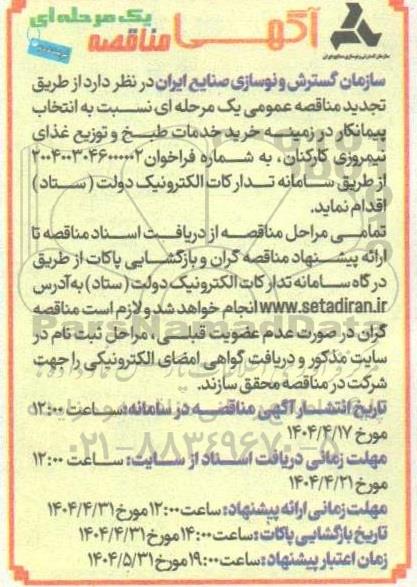 آگهی مناقصه یک مرحله ای
سازمان گسترش و نوسازی صنایع ایران
سازمان گسترش و نوسازی صنایع ایران در نظر دارد از طریق
تجدید مناقصه عمومی یک مرحله ای نسبت به انتخاب
پیمانکار در زمینه خرید خدمات طبخ و توزیع غذای
نیمروزی کارکنان، به شماره فراخوان ۲۰۰۴۰۰۳۰۴۶۰۰۰۰۰۲
از طریق سامانه تدارکات الکترونیک دولت (ستاد)
اقدام نماید.
تمامی مراحل مناقصه از دریافت اسناد مناقصه تا
ارائه پیشنهاد مناقصه گران و بازگشایی پاکات از طریق
درگاه سامانه تدارکات الکترونیک دولت (ستاد) به آدرس
www.setadiran.ir انجام خواهد شد و لازم است مناقصه
گران در صورت عدم عضویت قبلی، مراحل ثبت نام در
سایت مذکور و دریافت گواهی امضای الکترونیکی را جهت
شرکت در مناقصه محقق سازند.
تاریخ انتشار آگهی مناقصه در سامانه: ساعت ۱۲:۰۰
مورخ ۱۴۰۴/۴/۱۷
مهلت زمانی دریافت اسناد از سایت: ساعت ۱۲:۰۰
مورخ ۱۴۰۴/۴/۲۱
مهلت زمانی ارائه پیشنهاد: ساعت ۱۲:۰۰ مورخ ۱۴۰۴/۴/۳۱
تاریخ بازگشایی پاکات: ساعت ۱۴:۰۰ مورخ ۱۴۰۴/۴/۳۱
زمان اعتبار پیشنهاد: ساعت ۱۹:۰۰ مورخ ۱۴۰۴/۵/۳۱
۰۲۱-۸۸۳۴۹۶۷۰-۸